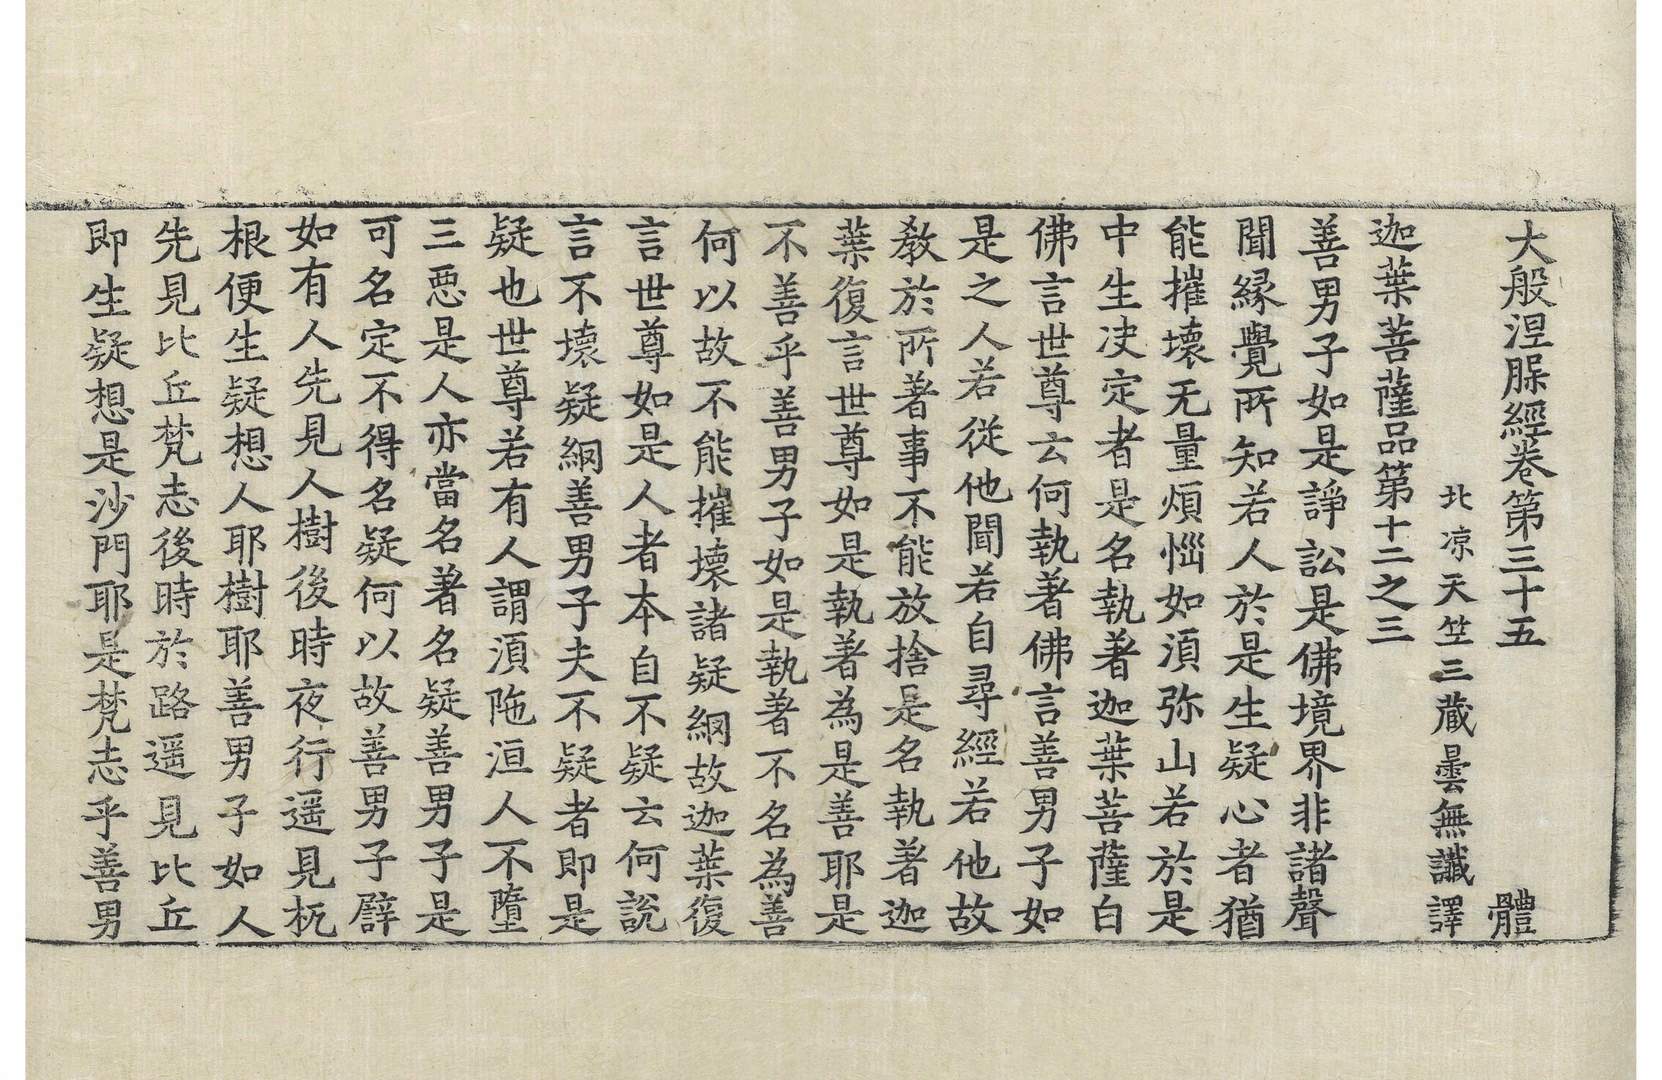 大般涅槃經卷第三十五　體
北涼天竺三藏曇無讖譯
迦葉菩薩品第十二之三
善男子如是諍訟是佛境界非諸聲
聞緣覺所知若人於是生疑心者猶
能摧壞无量煩惱如湏弥山若於是
中生决定者是名執著迦葉菩薩白
佛言世尊云何執著佛言善男子如
是之人若從他聞若自尋經若他故
教於所著事不能放捨是名執著迦
葉復言世尊如是執著為是善耶是
不善乎善男子如是執著不名為善
何以故不能摧壞諸疑網故迦葉復
言世尊如是人者本自不疑云何說
言不壞疑網善男子夫不疑者即是
疑也世尊若有人謂湏陁洹人不墮
三惡是人亦當名著名疑善男子是
可名定不得名疑何以故善男子譬
如有人先見人樹後時夜行遥見杌
根便生疑想人耶樹耶善男子如人
先見比丘梵志後時於路遥見比丘
即生疑想是沙門耶是梵志乎善男